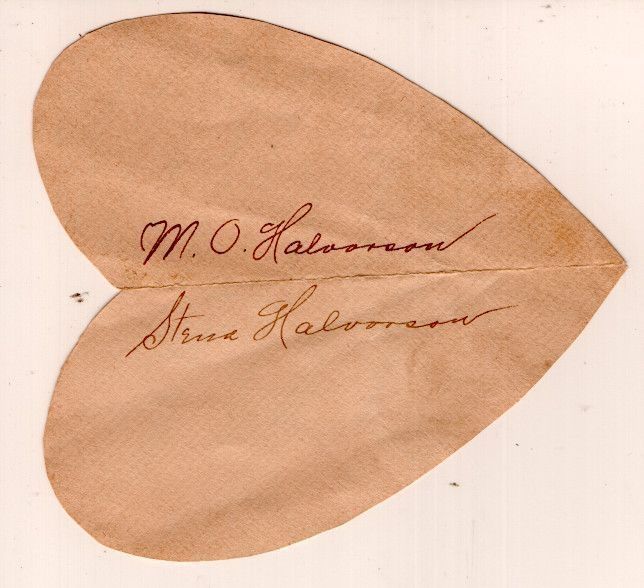 M. O. Halvorson
Stena Halvorson